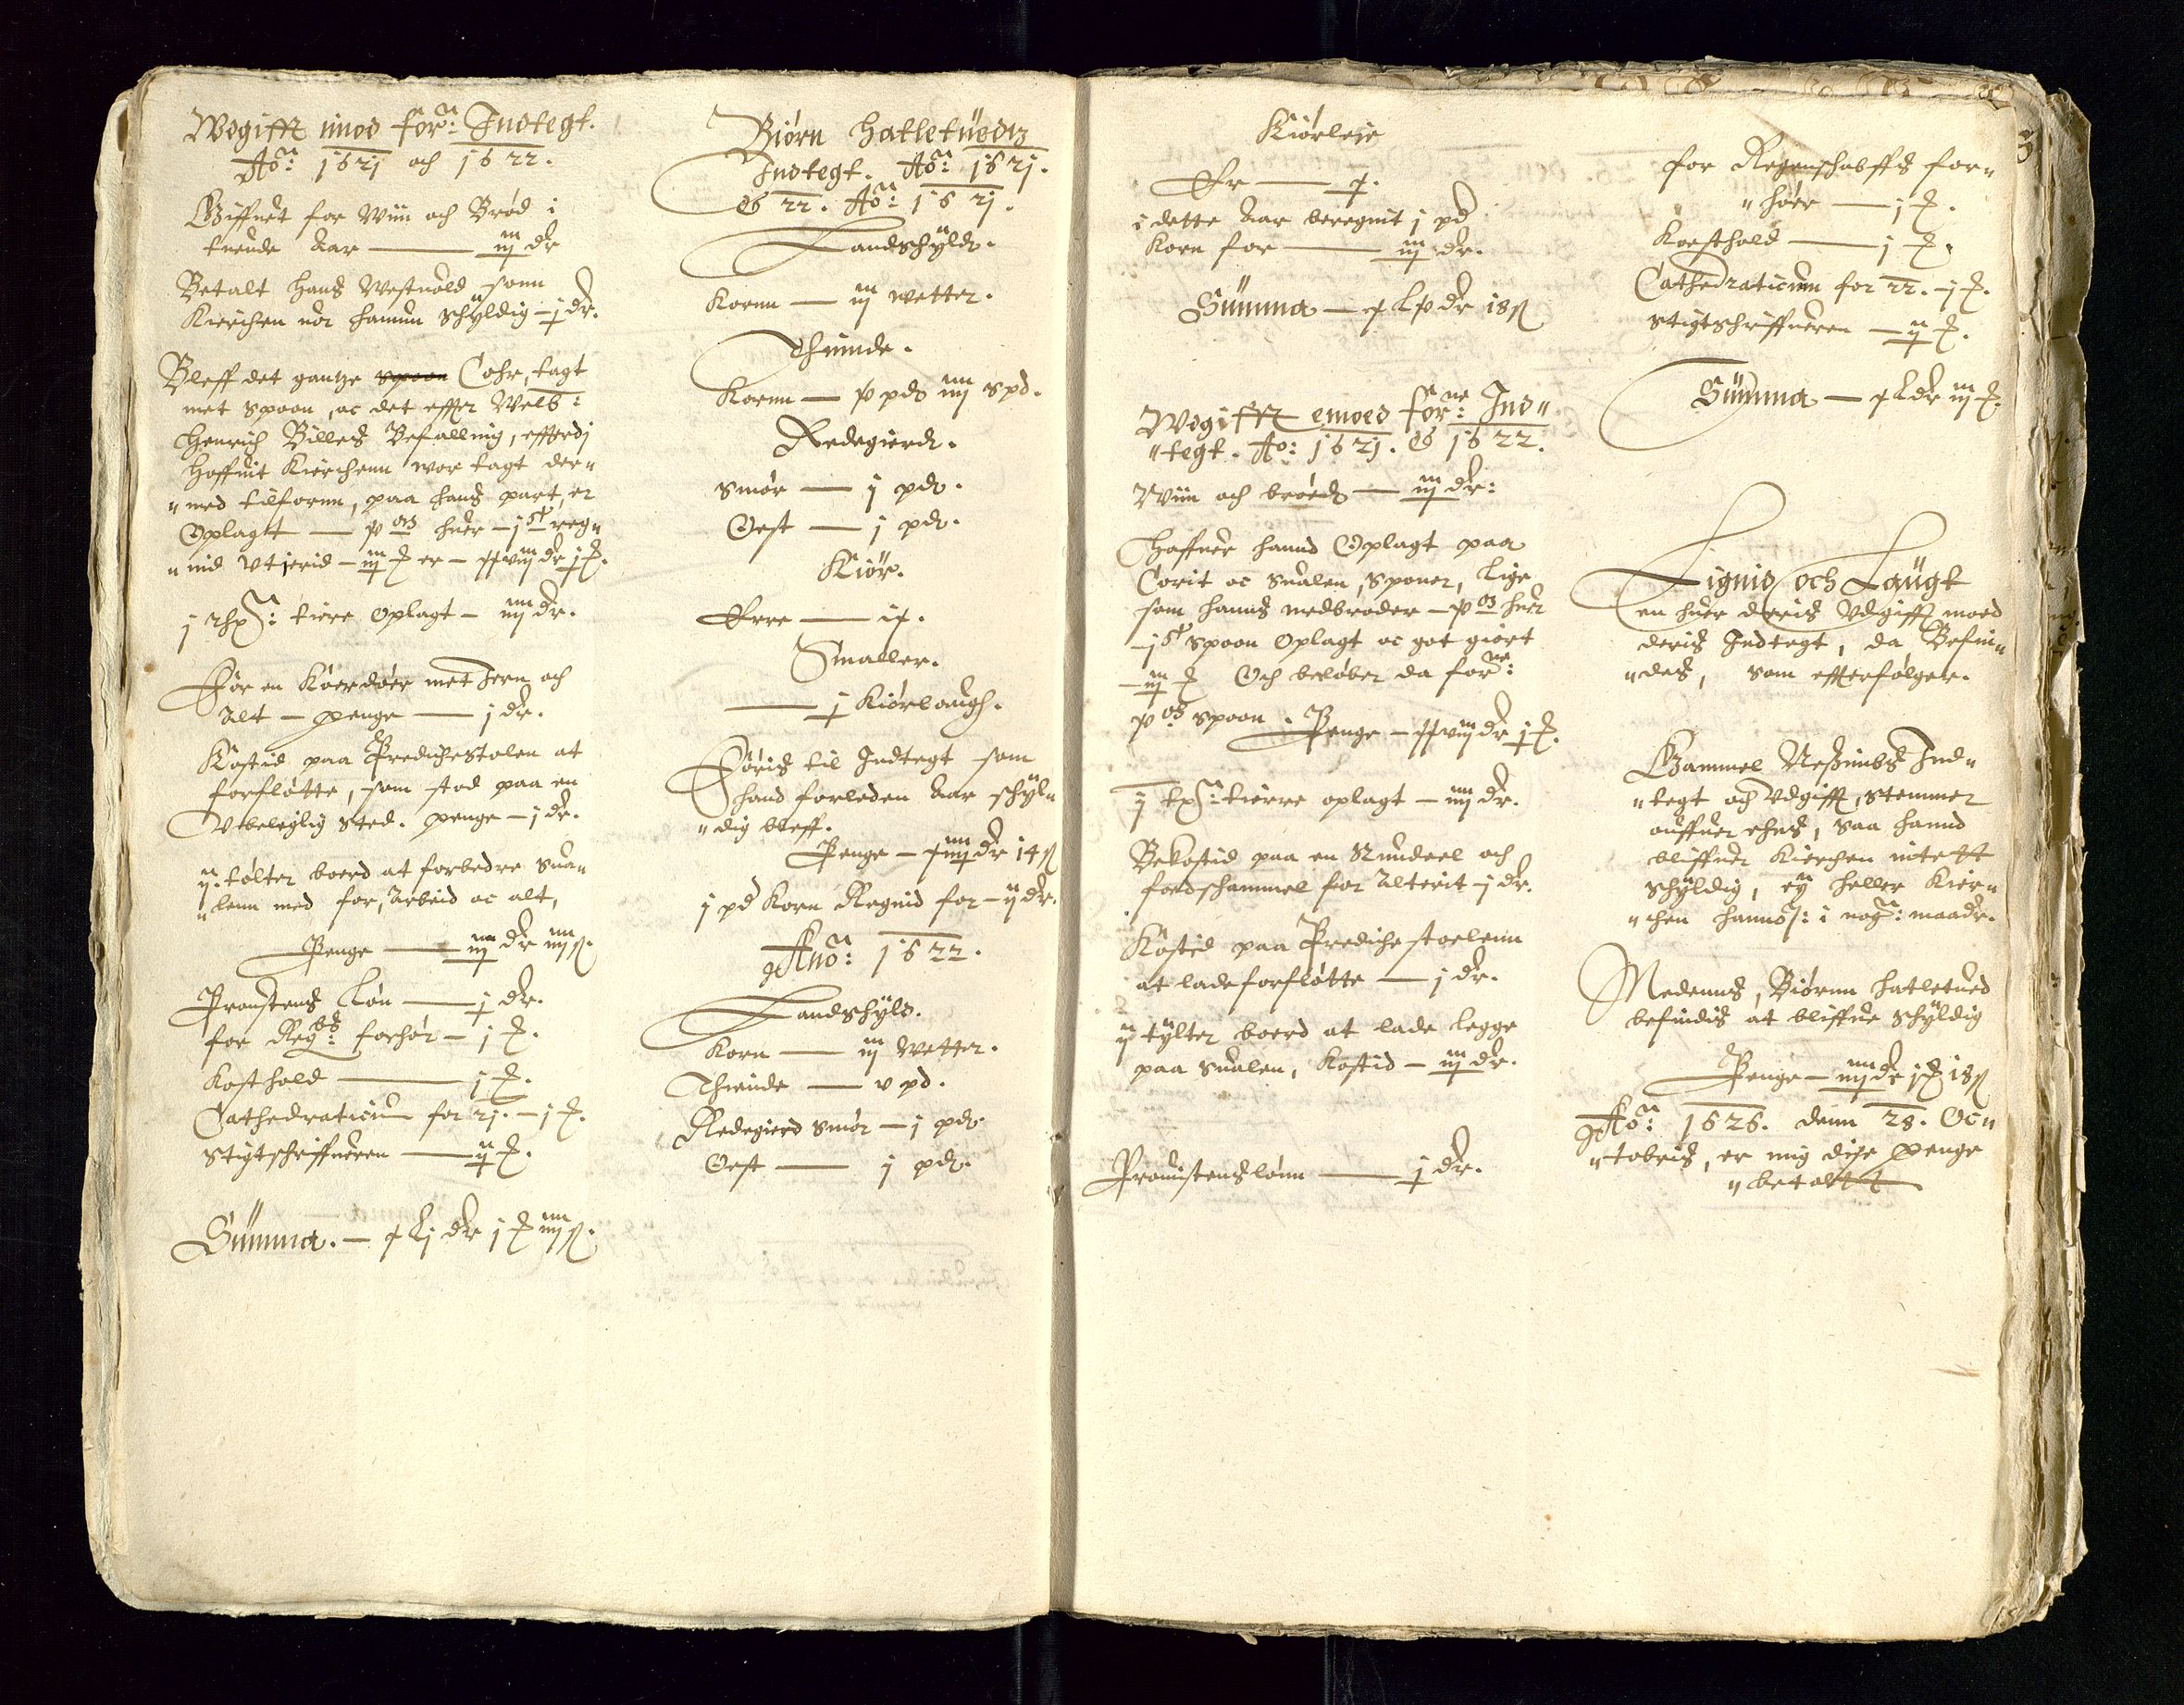 Wdgifft imod for:ne Indtegt.
Ao: 1621 och 1622.
Giffuet for Wiin och Brød i
tuende Aar — iij dr
Betalt Hans Westuold som
Kierchen vor hannum schÿldig — j dr.
Bleff det gantze spoon Cohr, tagt
met Spoon, oc det effter Welb:
Henrich Billes Befalling, effterdj
Hoffuit Kierchenn wor tagt der„
„med tilfornn, paa hans part, er
Oplagt — huer — j
„nid vtj
j tiere Oplagt — iiij dr.
For en Koerdøer met Jern och
Alt — penge — j dr.
Kostid paa Predichestolen at
forfløtte, som stod paa en
Vbeleylig sted. penge — j dr.
ij. tølter boerd at forbedre Sua„
„lenn med for, Arbeid oc alt,
Penge — iij dr iiij ß.
Proustens Løn — j dr.
for Regs: forhør — j
Kosthold — j
Cathedraticum for 21. — j
Stigtschriffueren — ij
Summa. — Lj dr j iiij ß.
Biørn Hatletuedtz
Indtegt. Ao: 1621.
& 22. Ao: 1621.
Landschÿld.
Kornn — iij wetter.
Thiinde.
Kornn — pd iiij spd.
Redegierd.
Smør — j pd.
Oest — j pd.
Kiør.
Erre —
Smaller.
— j Kiørlaugh.
Føris til Indtegt som
hand forleden Aar schÿl„
„dig bleff.
Penge — dr 14 ß
j pd Korn Regnid for — ij dr.
Anno: 1622.
Landschÿld.
Korn — iij Wetter.
Thiende — v pd.
Redegierd smør — j pd.
Oest — j pd.
Kiørleie
Er —
i dette Aar beregnit j pd
Korn for — iij dr.
Summa — dr 18 ß
Wdgifft emoed for:ne Ind„
„tegt. Ao: 1621. & 1622.
Wiin och brøed — iij dr:
Haffuer hannd Oplagt paa
Corit oc Sualen, Sponer, lige
som hanns medbroder — huer
— j Spoon Oplagt oc got giort
— iij Och beløber da for:ne
spoon. Penge — dr j
ij tierre oplagt — iiij dr.
Bekostid paa en Rundeel och
fodschammel for Alterit — j dr.
Kostid paa Predichestoelenn
at lade forfløtte — j dr.
ij tÿlter boerd at lade legge
paa Sualen, Kostid — iij dr.
Prouistenslønn — j dr.
for Regenschabffs for„
„høer — j
Koesthold — j
Cathedraticum for 22. — j
Stigtschriffueren — ij
Summa — L dr iij
Lignid och Laugt
en huer deris Vdgifft moed
deris Indtegt, da Befin„
„des, som effterfølger.
Gammel Ind„
„tegt och Vdgifft, stemmer
offuer ehns, saa hannd
bliffuer Kierchen intett
schÿldig, eÿ heller Kier„
„chen hannd: i nog: maader.
Medenns, Biørnn Hatletued
befindis at bliffue schÿldig
Penge — iiij dr j 18 ß
Ao: 1626. denn 28. Oc„
„tobris, er mig diße penge
„betaltt